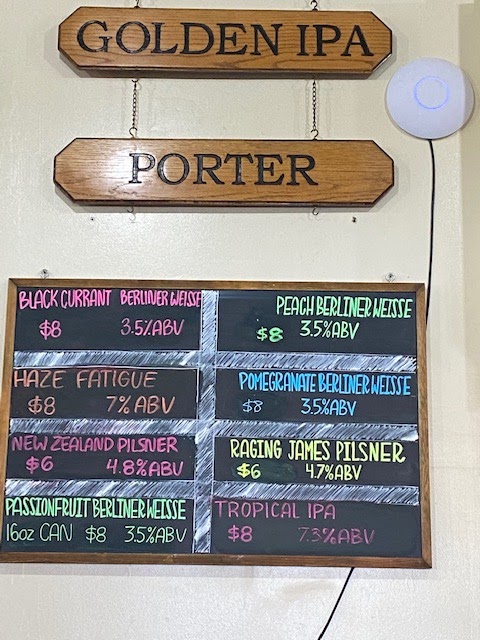 GOLDEN IPA
PORTER
BLACK CURRANT BERLINER WEISSE
$8 3.5%ABV
HAZE FATIGUE
$8 7%ABV
NEW ZEALAND PILSNER
$6 4.8%ABV
PASSIONFRUIT BERLINER WEISSE
16oz CAN $8 3.5%ABV
PEACH BERLINER WEISSE
$8 3.5%ABV
POMEGRANATE BERLINER WEISSE
$8 3.5%ABV
RAGING JAMES PILSNER
$6 4.7%ABV
TROPICAL IPA
$8 7.3%ABV